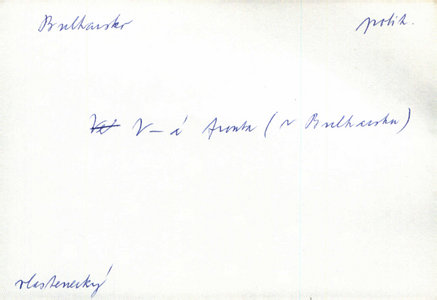 Bulharsko polit.
V-á fronta (v Bulharsku)
vlastenecký